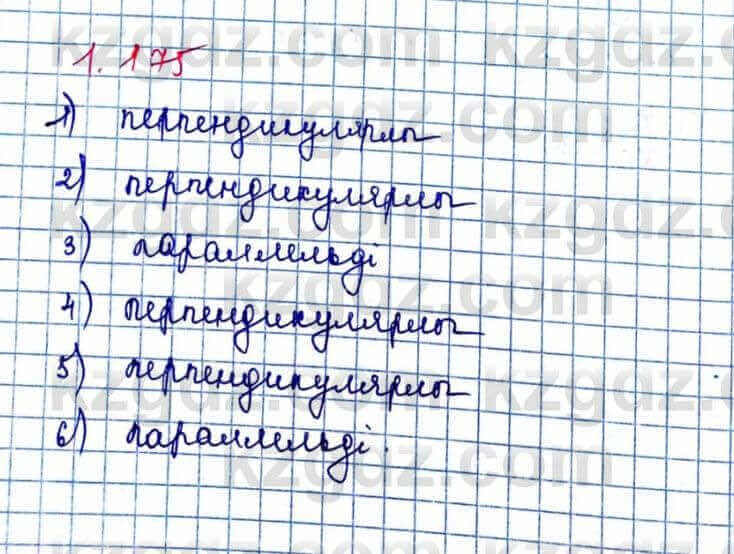 1.175
1) перпендикулярлы
2) перпендикулярлы
3) параллельді
4) перпендикулярлы
5) перпендикулярлы
6) параллельді.
kzgdz.com kzgdz.com
kzgdz.com
kzgdz.com kzgdz.com
kzgdz.com
kzgdz.com kzgdz.com
kzgdz.com